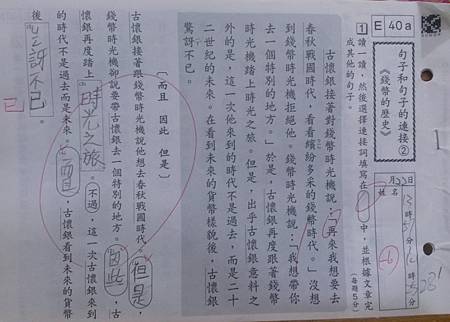 E 40a
句子和句子的連接②
《錢幣的歷史》
月 日
姓名
1 讀一讀，然後選擇連接詞填寫在 中，並根據文章完
成其他的句子。(每題5分)
古懷銀接著對錢幣時光機說：「再來我想要去
春秋戰國時代，看看繽紛多采的錢幣時代。」沒想
到錢幣時光機拒絕他。錢幣時光機說：「我想帶你
去一個特別的地方。」於是，古懷銀再度跟著錢幣
時光機踏上時光之旅。但是，出乎古懷銀意料之
外的是，這一次他來到的時代不是過去，而是二十
二世紀的未來。在看到未來的貨幣樣貌後，古懷銀
驚訝不已。
(而且 因此 但是)
古懷銀接著跟錢幣時光機說他想去春秋戰國時代，但是，
錢幣時光機卻說要帶古懷銀去一個特別的地方。因此，古
懷銀再度踏上時光之旅。不過，這一次古懷銀來到
的時代不是過去而是未來，而且，古懷銀看到未來的貨幣
後訝不已。
已